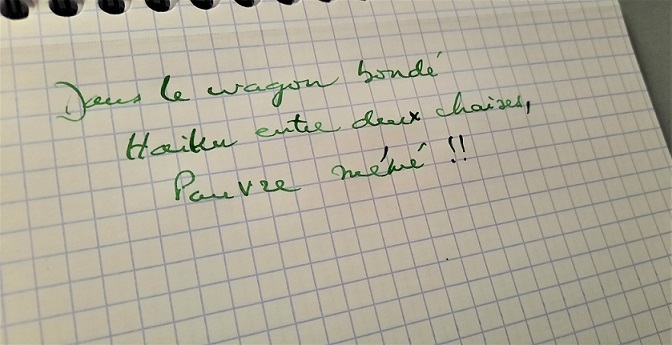 Dans le wagon bondé
Haiku entre deux chaises,
Pauvre mémé !!